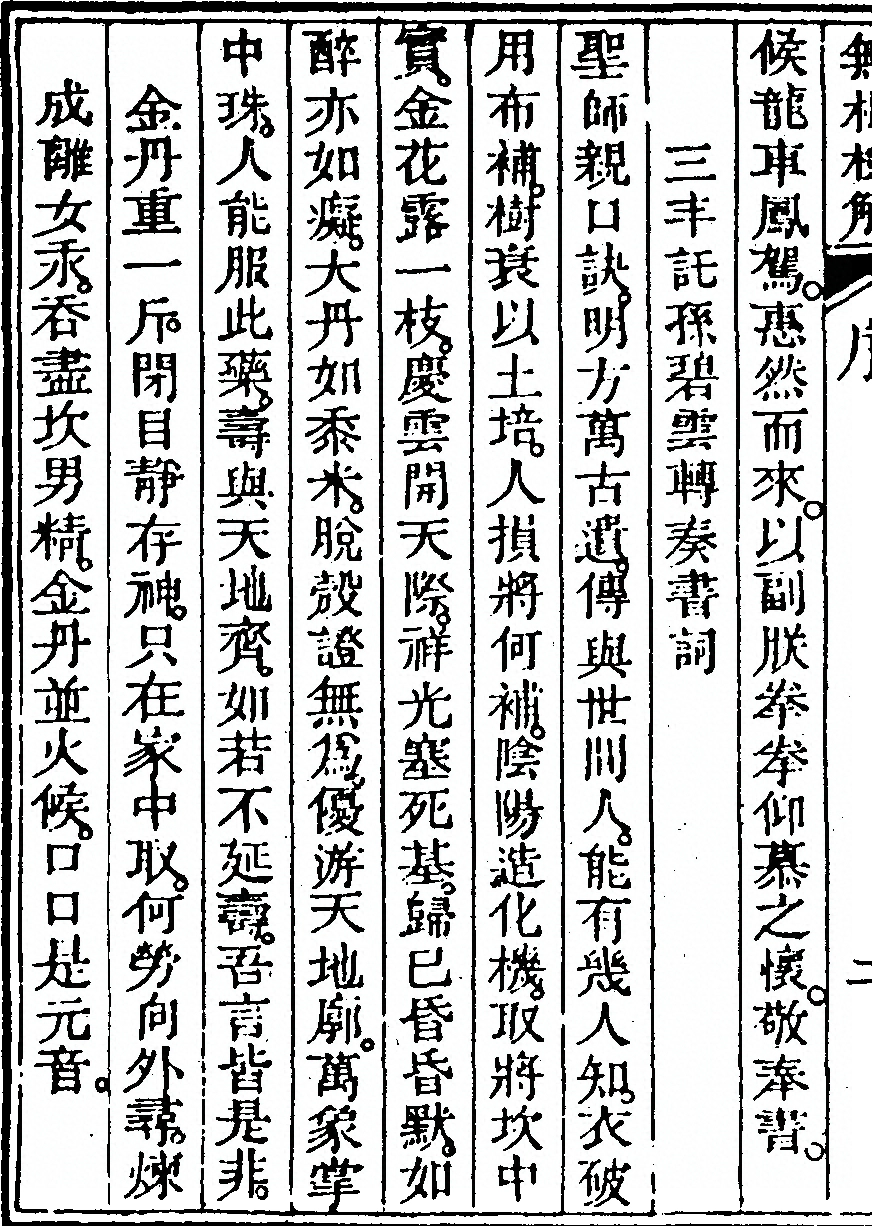 無根樹解 序 二
候龍車鳳駕。惠然而來。以副朕拳拳仰慕之懷。敬奉書。
三丰託孫碧雲轉奏書詞
聖師親口訣。明方萬古遺。傳與世間人。能有幾人知。衣破
用布補。樹衰以土培。人損將何補。陰陽造化機。取將坎中
實。金花露一枝。慶雲開天際。祥光塞死基。歸已昏昏默。如
醉亦如癡。大丹如黍米。脫殼證無為。優游天地廓。萬象掌
中珠。人能服此藥。壽與天地齊。如若不延壽。吾言皆是非。
金丹重一斤。閉目靜存神。只在家中取。何勞向外尋。煉
成離女汞。吞盡坎男精。金丹並火候。口口是元音。